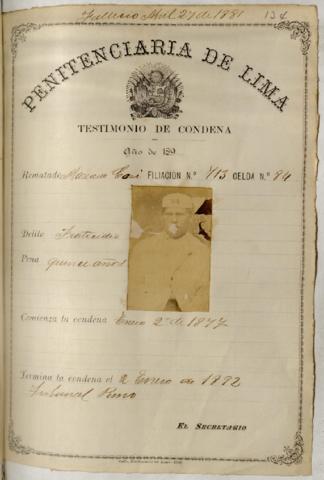 Falleció Abril 27 de 1881
134
PENITENCIARIA DE LIMA
TESTIMONIO DE CONDENA
Año de 189
Rematado FILIACIÓN N.º 713 CELDA N.º 94
Delito
Pena quince años
Comienza la condena Enero 2 de 1877
Termina la condena el 2 Enero de 1892
Tribunal Puno
EL SECRETARIO